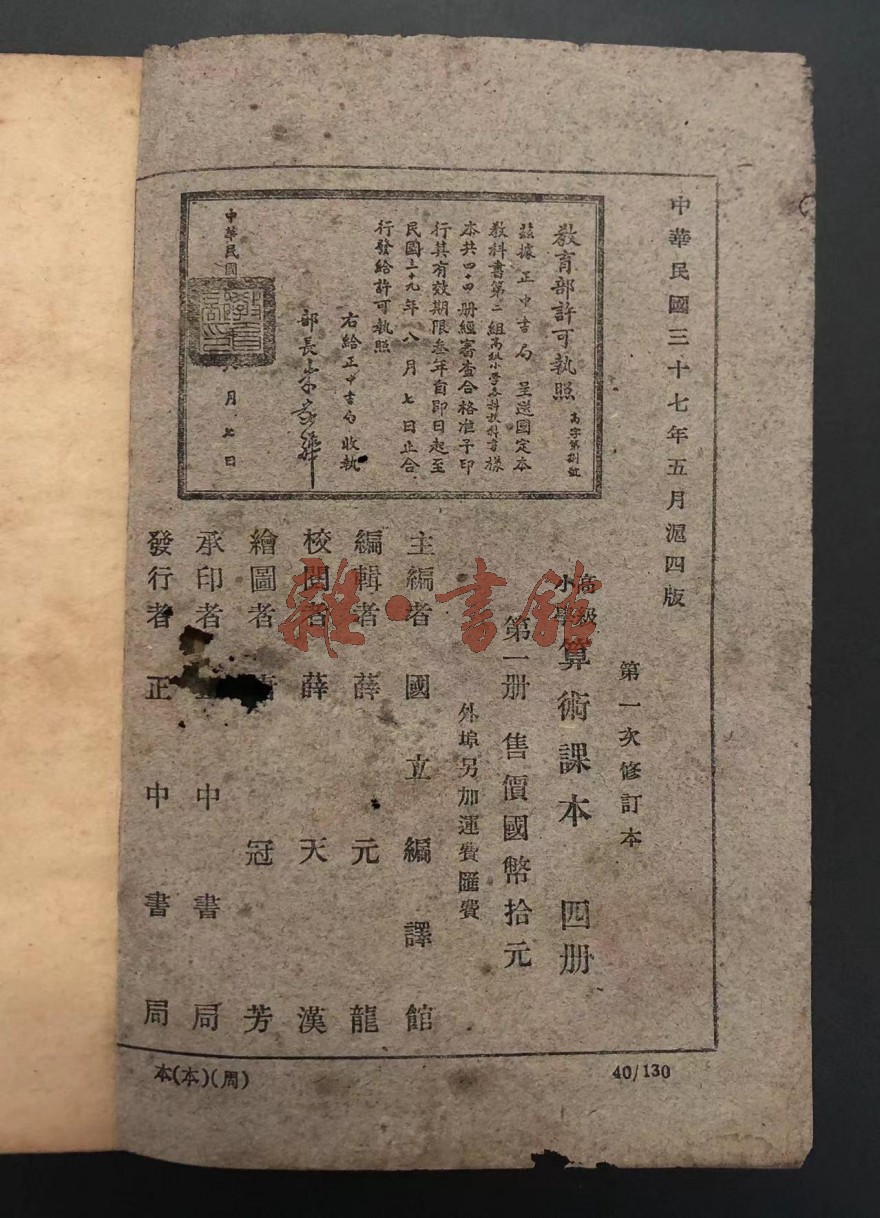 中華民國三十七年五月滬四版
第一次修訂本
高級
小學
算術課本 四册
第一册 售價國幣拾元
外埠另加運費匯費
主編者 國立編譯館
編輯者 薛元龍
校閱者 薛天漢
繪圖者 冠芳
承印者 中書局
發行者 正中書局
教育部許可執照
高字第捌號
茲據正中書局呈送國定本
教科書第二組高級小學各科教科書樣
本共四十四册經審查合格准予印
行其有效期限叁年自即日起至
民國三十九年八月七日止合
行發給許可執照
右給正中書局收執
部長朱家驊
中華民國
月七日
教育部印
本(本)(周)
40/130
雜·書館